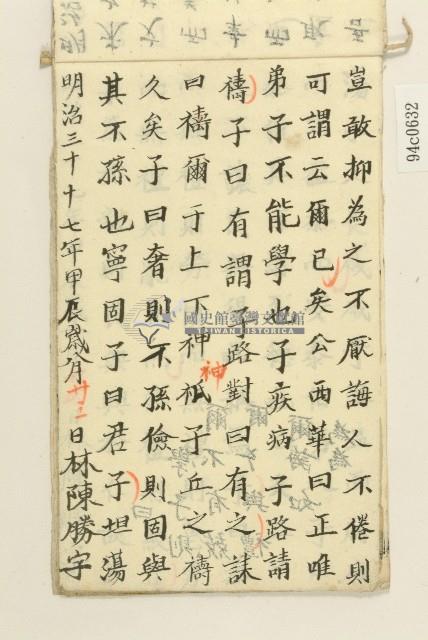 豈敢抑為之不厭誨人不倦則
可謂云爾已矣公西華曰正唯
弟子不能學也子疾病子路請
禱子曰有謂子路對曰有之誄
曰禱爾于上下神祇子丘之禱
神
久矣子曰奢則不孫儉則固與
其不孫也寧固子曰君子坦蕩
明治三十十七年甲辰歲八月廿三日林陳勝字
94c0632
國史館臺灣文獻館
TAIWAN HISTORICA